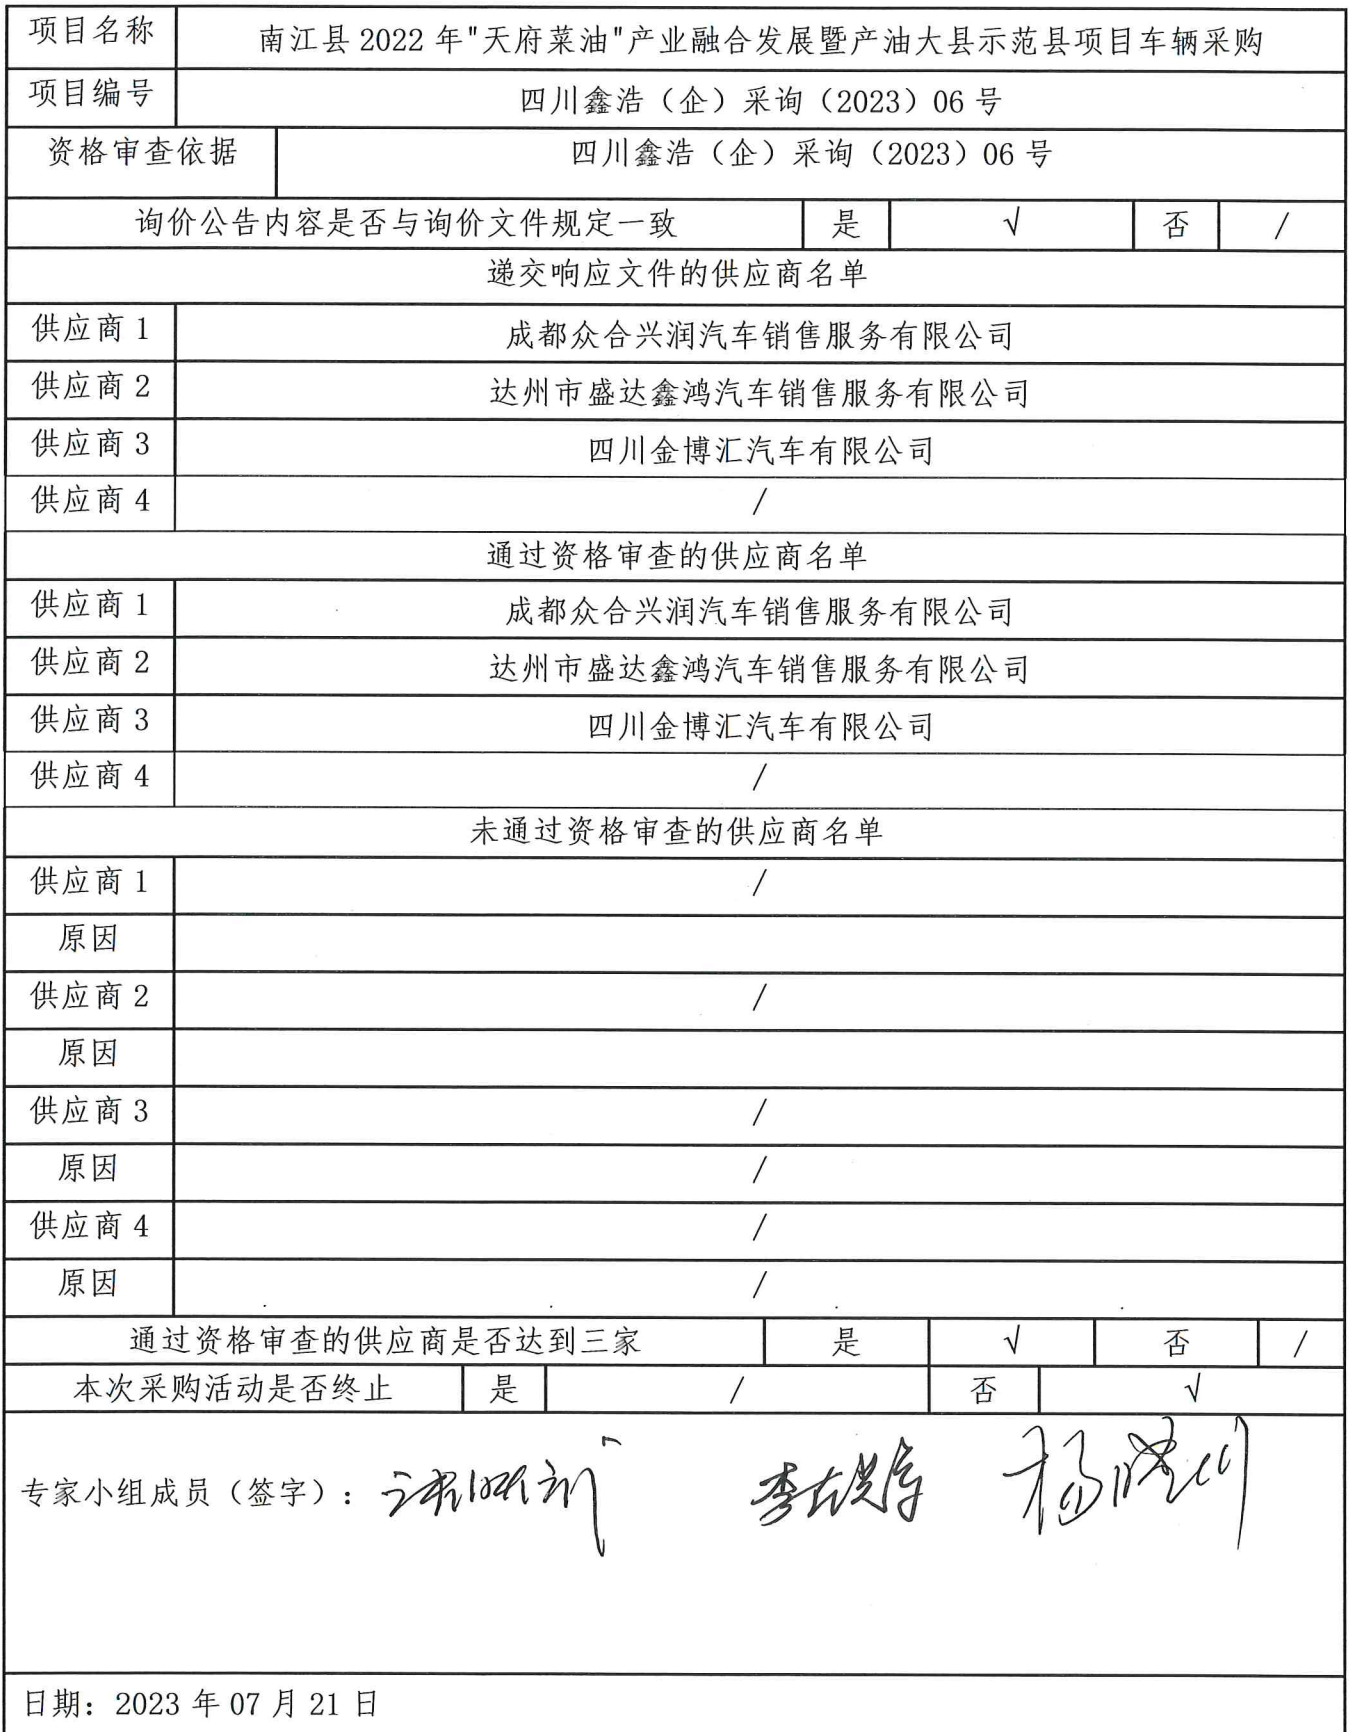 项目名称 南江县 2022 年"天府菜油"产业融合发展暨产油大县示范县项目车辆采购
项目编号 四川鑫浩（企）采询（2023）06 号
资格审查依据 四川鑫浩（企）采询（2023）06 号
询价公告内容是否与询价文件规定一致 是 √ 否 /
递交响应文件的供应商名单
供应商 1 成都众合兴润汽车销售服务有限公司
供应商 2 达州市盛达鑫鸿汽车销售服务有限公司
供应商 3 四川金博汇汽车有限公司
供应商 4 /
通过资格审查的供应商名单
供应商 1 成都众合兴润汽车销售服务有限公司
供应商 2 达州市盛达鑫鸿汽车销售服务有限公司
供应商 3 四川金博汇汽车有限公司
供应商 4 /
未通过资格审查的供应商名单
供应商 1 /
原因
供应商 2 /
原因
供应商 3 /
原因 /
供应商 4 /
原因 /
通过资格审查的供应商是否达到三家 是 √ 否 /
本次采购活动是否终止 是 / 否 √
专家小组成员（签字）：
日期：2023 年 07 月 21 日